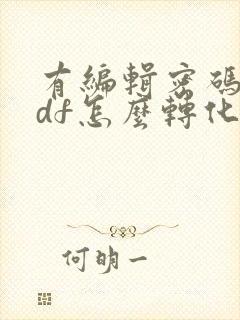 有編輯密碼
df怎麼轉化
何明一